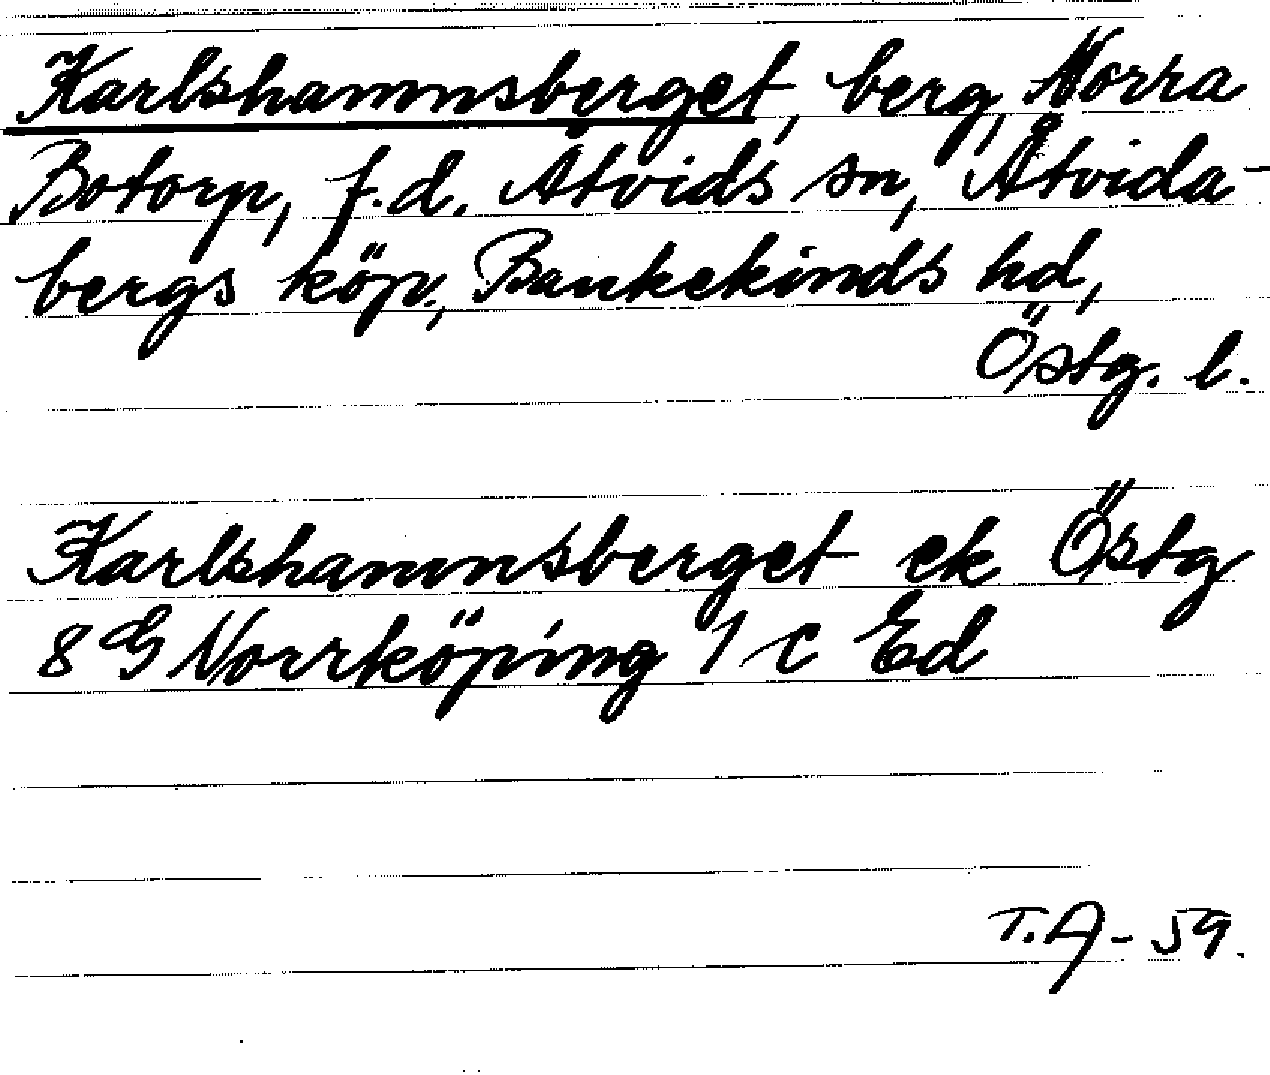 Karlshamnsberget, berg, Norra
Botorp, f.d. Åtvids sn, Åtvida-
bergs köp., Bankekinds hd,
Östg. l.
Karlshamnsberget ek Östg
8 G Norrköping 1 c Ed
T.A - 59.